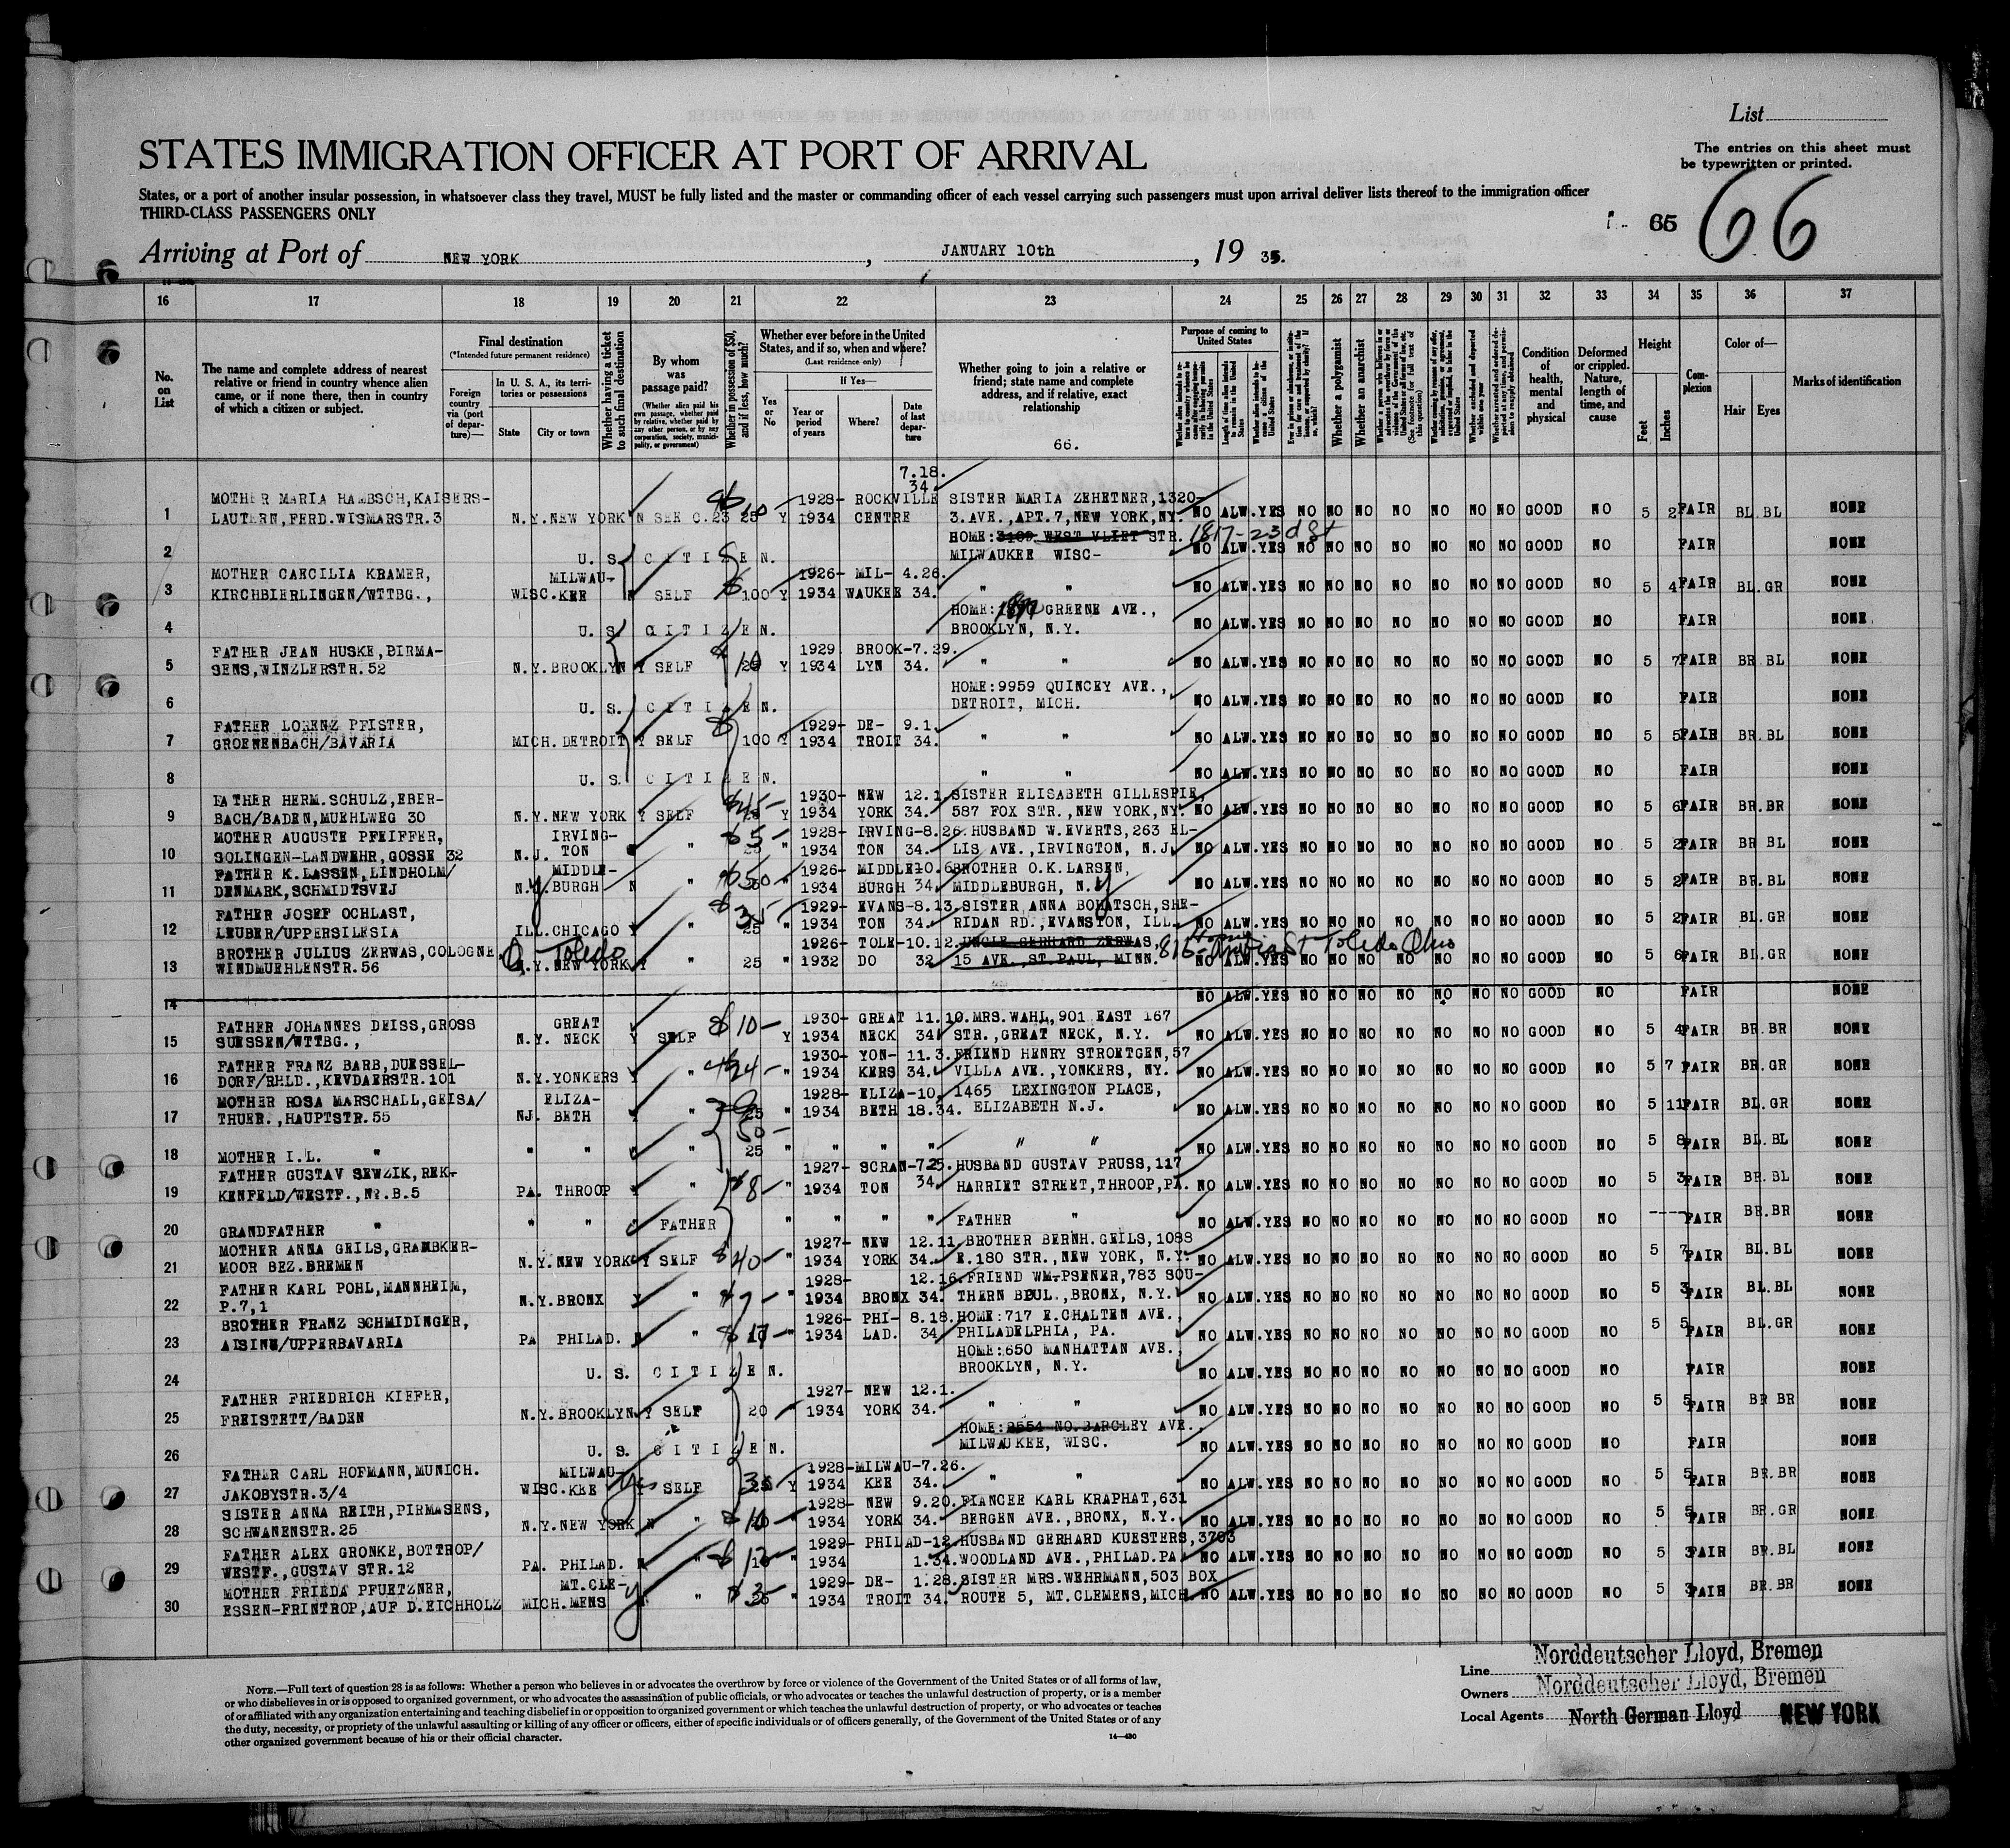 List
The entries on this sheet must
be typewritten or printed.
STATES IMMIGRATION OFFICER AT PORT OF ARRIVAL
States, or a port of another insular possession, in whatsoever class they travel, MUST be fully listed and the master or commanding officer of each vessel carrying such passengers must upon arrival deliver lists thereof to the immigration officer
THIRD-CLASS PASSENGERS ONLY
65 66
Arriving at Port of NEW YORK, JANUARY 10th, 19 35.
16 17 18 19 20 21 22 23 24 25 26 27 28 29 30 31 32 33 34 35 36 37
No. on List
The name and complete address of nearest relative or friend in country whence alien came, or if none there, then in country of which a citizen or subject.
Final destination
(*Intended future permanent residence)
Foreign country via (port of departure)—
In U. S. A., its territories or possessions
State City or town
Whether having a ticket to such final destination
By whom was passage paid?
(Whether alien paid his own passage, whether paid by relative, whether paid by any other person, or by any corporation, society, municipality, or government)
Whether in possession of $50, and if less, how much?
Whether ever before in the United States, and if so, when and where?
(Last residence only)
Yes or No
If Yes—
Year or period of years
Where?
Date of last departure
Whether going to join a relative or friend; state name and complete address, and if relative, exact relationship
66.
Purpose of coming to United States
Whether a polygamist
Whether an anarchist
Condition of health, mental and physical
Deformed or crippled. Nature, length of time, and cause
Height
Feet Inches
Complexion
Color of—
Hair Eyes
Marks of identification
1 MOTHER MARIA HAMBSCH, KAISERS-
LAUTERN, FERD. WISMARSTR. 3 N.Y. NEW YORK N SEE C.23 25 10 Y 1928-1934 ROCKVILLE CENTRE 7.18.34. SISTER MARIA ZEHETNER, 1320-
3. AVE., APT. 7, NEW YORK, NY. NO ALW. YES NO NO NO NO NO NO NO GOOD NO 5 2 FAIR BL. BL NONE
2 U. S. CITIZEN. HOME: 3109 WEST VLIET STR. 1817-23d St
MILWAUKEE WISC- NO ALW. YES NO NO NO NO NO NO NO GOOD NO FAIR NONE
3 MOTHER CAECILIA KRAMER,
KIRCHBIERLINGEN/WTTBG., WISC. MILWAUKEE SELF $100 Y 1926-1934 MILWAUKEE 4.26.34. " " NO ALW. YES NO NO NO NO NO NO NO GOOD NO 5 4 FAIR BL. GR NONE
4 U. S. CITIZEN. HOME: GREENE AVE.,
BROOKLYN, N.Y. NO ALW. YES NO NO NO NO NO NO NO GOOD NO FAIR NONE
5 FATHER JEAN HUSKE, BIRMA-
SENS, WINZLERSTR. 52 N.Y. BROOKLYN Y SELF $10 Y 1929 1934 BROOKLYN 7.29.34. " " NO ALW. YES NO NO NO NO NO NO NO GOOD NO 5 7 FAIR BR BL NONE
6 U. S. CITIZEN. HOME: 9959 QUINCEY AVE.,
DETROIT, MICH. NO ALW. YES NO NO NO NO NO NO NO GOOD NO FAIR NONE
7 FATHER LORENZ PFISTER,
GROENENBACH/BAVARIA MICH. DETROIT Y SELF $100 Y 1929-1934 DETROIT 9.1.34. " " NO ALW. YES NO NO NO NO NO NO NO GOOD NO 5 5 FAIR BR. BL NONE
8 U. S. CITIZEN. " " NO ALW. YES NO NO NO NO NO NO NO GOOD NO FAIR NONE
9 FATHER HERM. SCHULZ, EBER-
BACH/BADEN, MUEHLWEG 30 N.Y. NEW YORK Y SELF $45- Y 1930-1934 NEW YORK 12.1.34. SISTER ELISABETH GILLESPIE,
587 FOX STR., NEW YORK, NY. NO ALW. YES NO NO NO NO NO NO NO GOOD NO 5 6 FAIR BR. BR NONE
10 MOTHER AUGUSTE PFEIFFER,
SOLINGEN-LANDWEHR, GOSSE 32 N.J. IRVINGTON " $5- 25 " 1928-1934 IRVINGTON 8.26.34. HUSBAND W. EVERTS, 263 EL-
LIS AVE., IRVINGTON, N.J. NO ALW. YES NO NO NO NO NO NO NO GOOD NO 5 2 FAIR BR BL NONE
11 FATHER K. LASSEN, LINDHOLM/
DENMARK, SCHMIDTSVEJ N.Y MIDDLEBURGH N " $50- " 1926-1934 MIDDLEBURGH 10.6.34 BROTHER O.K. LARSEN,
MIDDLEBURGH, N.Y NO ALW. YES NO NO NO NO NO NO NO GOOD NO 5 2 FAIR BR. BL NONE
12 FATHER JOSEF OCHLAST,
LEUBER/UPPERSILESIA ILL. CHICAGO Y " $35- 25 " 1929-1934 EVANSTON 8.13.34. SISTER ANNA BOMATSCH, SHE-
RIDAN RD., EVANSTON, ILL. NO ALW. YES NO NO NO NO NO NO NO GOOD NO 5 2 FAIR BL. GR NONE
13 BROTHER JULIUS ZERWAS, COLOGNE,
WINDMUEHLENSTR. 56 O. Toledo N.Y. NEW YORK Y " 25 " 1926-1932 TOLEDO 10.12.32 UNCLE GERHARD ZERWAS,
15 AVE., ST. PAUL, MINN. Toledo Ohio NO ALW. YES NO NO NO NO NO NO NO GOOD NO 5 6 FAIR BL. GR NONE
14 NO ALW. YES NO NO NO NO NO NO NO GOOD NO FAIR NONE
15 FATHER JOHANNES DEISS, GROSS
SUESSEN/WTTBG., N.Y. GREAT NECK Y SELF $10- Y 1930-1934 GREAT NECK 11.10.34. MRS. WAHL, 901 EAST 167
STR., GREAT NECK, N.Y. NO ALW. YES NO NO NO NO NO NO NO GOOD NO 5 4 FAIR BR. BR NONE
16 FATHER FRANZ BARB, DUESSEL-
DORF/RHLD., KEVDAERSTR. 101 N.Y. YONKERS Y " $24- " 1930-1934 YONKERS 11.3.34. FRIEND HENRY STROETGEN, 57
VILLA AVE., YONKERS, NY. NO ALW. YES NO NO NO NO NO NO NO GOOD NO 5 7 FAIR BR. GR NONE
17 MOTHER ROSA MARSCHALL, GEISA/
THUER., HAUPTSTR. 55 NJ. ELIZABETH " 25 " 1928-1934 ELIZABETH 10.18.34. 1465 LEXINGTON PLACE,
ELIZABETH N.J. NO ALW. YES NO NO NO NO NO NO NO GOOD NO 5 11 FAIR BL. GR NONE
18 MOTHER I.L. " " " " 50- 25 " " " " " " NO ALW. YES NO NO NO NO NO NO NO GOOD NO 5 8 FAIR BL. BL NONE
19 FATHER GUSTAV SEWZIK, REK-
KENFELD/WESTF., NR. B. 5 PA. THROOP " $8- " 1927-1934 SCRANTON 7.25.34. HUSBAND GUSTAV PRUSS, 117
HARRIET STREET, THROOP, PA. NO ALW. YES NO NO NO NO NO NO NO GOOD NO 5 3 FAIR BR. BL NONE
20 GRANDFATHER " " " FATHER " " " " FATHER " NO ALW. YES NO NO NO NO NO NO NO GOOD NO ---- FAIR BR. BR NONE
21 MOTHER ANNA GEILS, GRAMBKER-
MOOR BEZ. BREMEN N.Y. NEW YORK Y SELF $40- " 1927-1934 NEW YORK 12.11.34. BROTHER BERNH. GEILS, 1088
E. 180 STR., NEW YORK, N.Y. NO ALW. YES NO NO NO NO NO NO NO GOOD NO 5 7 FAIR BL. BL NONE
22 FATHER KARL POHL, MANNHEIM,
P. 7, 1 N.Y. BRONX Y " $7- " 1928-1934 BRONX 12.16.34. FRIEND WM. PSENER, 783 SOU-
THERN BOUL., BRONX, N.Y. NO ALW. YES NO NO NO NO NO NO NO GOOD NO 5 3 FAIR BL. BL NONE
23 BROTHER FRANZ SCHMIDINGER,
AISING/UPPERBAVARIA PA PHILAD. N " $17- " 1926-1934 PHILAD. 8.18.34 HOME: 717 E. CHALTEN AVE.,
PHILADELPHIA, PA. NO ALW. YES NO NO NO NO NO NO NO GOOD NO 5 5 FAIR BL. GR NONE
24 U. S. CITIZEN. HOME: 650 MANHATTAN AVE.,
BROOKLYN, N.Y. NO ALW. YES NO NO NO NO NO NO NO GOOD NO FAIR NONE
25 FATHER FRIEDRICH KIEFER,
FREISTETT/BADEN N.Y. BROOKLYN Y SELF 20 1927-1934 NEW YORK 12.1.34. " " NO ALW. YES NO NO NO NO NO NO NO GOOD NO 5 5 FAIR BR BR NONE
26 U. S. CITIZEN. HOME: 2554 NO. BARCLEY AVE.,
MILWAUKEE, WISC. NO ALW. YES NO NO NO NO NO NO NO GOOD NO FAIR NONE
27 FATHER CARL HOFMANN, MUNICH.
JAKOBYSTR. 3/4 WISC. MILWAUKEE SELF 35 Y 1928-1934 MILWAUKEE 7.26.34. " " NO ALW. YES NO NO NO NO NO NO NO GOOD NO 5 5 FAIR BR. BR NONE
28 SISTER ANNA REITH, PIRMASENS,
SCHWANENSTR. 25 N.Y. NEW YORK N " $10- " 1928-1934 NEW YORK 9.20.34. FIANCEE KARL KRAPHAT, 631
BERGEN AVE., BRONX, N.Y. NO ALW. YES NO NO NO NO NO NO NO GOOD NO 5 5 FAIR BR. GR NONE
29 FATHER ALEX GRONKE, BOTTROP/
WESTF., GUSTAV STR. 12 PA. PHILAD. N " " 1929-1934 PHILAD- 12.1.34. HUSBAND GERHARD KUESTERS, 3703
WOODLAND AVE., PHILAD. PA NO ALW. YES NO NO NO NO NO NO NO GOOD NO 5 3 FAIR BR. BL NONE
30 MOTHER FRIEDA PFUETZNER,
ESSEN-FRINTROP, AUF D. EICHHOLZ MICH. MT. CLEMENS y " " 1929-1934 DETROIT 1.28.34. SISTER MRS. WEHRMANN, 503 BOX
ROUTE 5, MT. CLEMENS, MICH. NO ALW. YES NO NO NO NO NO NO NO GOOD NO 5 3 FAIR BR. BR NONE
NOTE.—Full text of question 28 is as follows: Whether a person who believes in or advocates the overthrow by force or violence of the Government of the United States or of all forms of law,
or who disbelieves in or is opposed to organized government, or who advocates the assassination of public officials, or who advocates or teaches the unlawful destruction of property, or is a member
of or affiliated with any organization entertaining and teaching disbelief in or opposition to organized government or which teaches the unlawful destruction of property, or who advocates or teaches
the duty, necessity, or propriety of the unlawful assaulting or killing of any officer or officers, either of specific individuals or of officers generally, of the Government of the United States or of any
other organized government because of his or their official character.
14—430
Line Norddeutscher Lloyd, Bremen
Owners Norddeutscher Lloyd, Bremen
Local Agents North German Lloyd NEW YORK